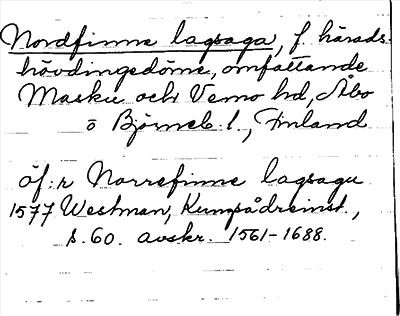 Nordfinne lagsaga, f. härads-
hövdingedöme, omfattande
Masku och Vemo hd, Åbo
o Björneb. l., Finland
öf: r Norrefinne lagsagu
1577 Westman, Kungsådreinst.,
s. 60. avskr. 1561-1688.